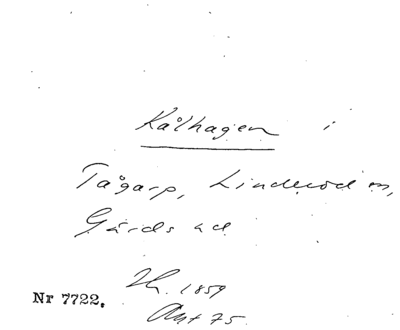 Kålhagen i
Tågarp, Linderöd sn,
Gärds hd
1859
Nr 7722.
Akt 75.